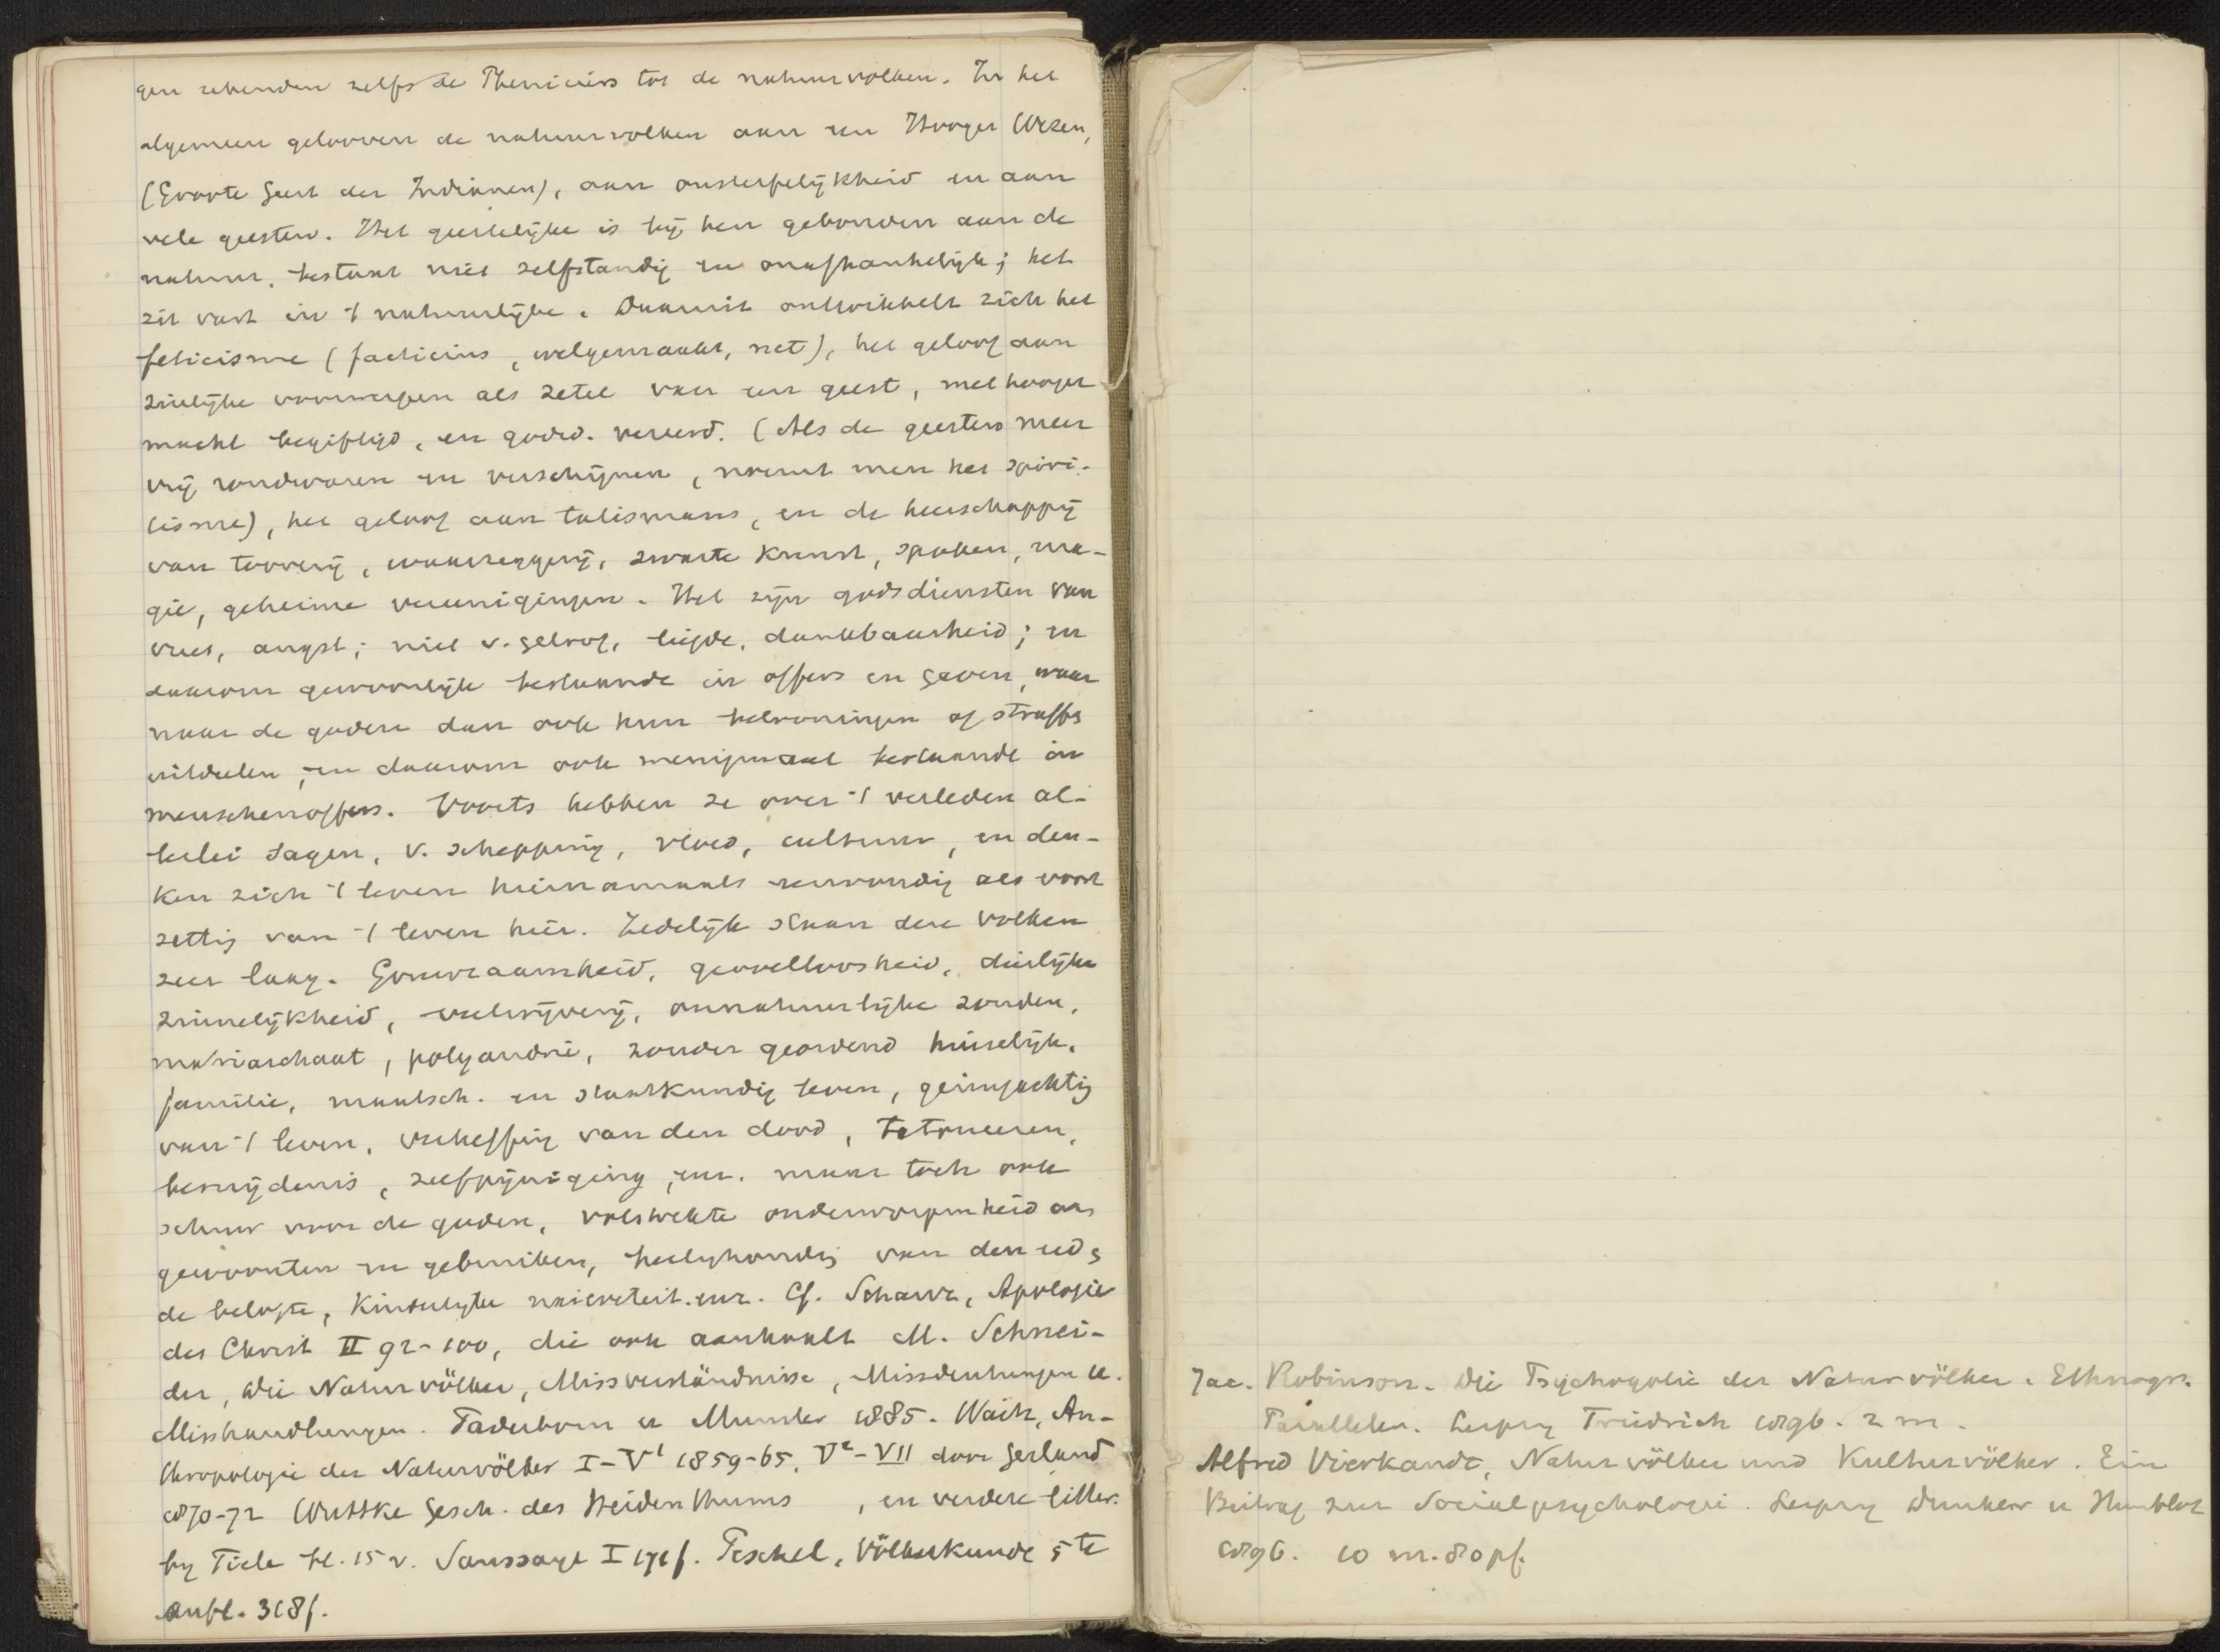 gen rekenden zelfs de Pheniciërs tot de natuurvolken. In het
algemeen gelooven de natuurvolken aan een Hooger Wezen,
(Groote Geest der Indianen), aan onsterfelijkheid en aan
vele geesten. Het geestelijke is bij hen gebonden aan de
natuur, bestaat niet zelfstandig en onafhankelijk; het
zit vast in 't natuurlijke. Daaruit ontwikkelt zich het
feticisme (facticius, welgemaakt, net), het geloof aan
zinlijke voorwerpen als zetel van een geest, met hooger
macht begiftigd, en godsd. vereerd. (Als de geesten meer
vrij rondwaren en verschijnen, noemt men het spiri-
tisme), het geloof aan talismans, en de heerschappij
van toverij, waarzeggerij, zwarte kunst, spoken, ma-
gie, geheime vereenigingen. Het zijn godsdiensten van
vrees, angst; niet v. geloof, liefde, dankbaarheid; en
daarom gewoonlijk bestaande in offers en gaven, waar
naar de goden dan ook hun belooningen of straffen
uitdeelen, en daarom ook menigmaal bestaande in
menschenoffers. Voorts hebben ze over 't verleden al-
lerlei sagen, v. schepping, vloed, cultuur, en den-
ken zich 't leven hiernamaals eenvoudig als voort
zetting van 't leven hier. Zedelijk staan deze volken
zeer laag. Gruwzaamheid, gevoelloosheid, dierlijke
zinnelijkheid, veelwijverij, onnatuurlijke zonden,
matriarchaat, polyandrie, zonder geordend huiselijk,
familie, maatsch. en staatkundig leven, geringachting
van 't leven, verheffing van den dood, tatoueeren,
besnijdenis, zelfpijniging, enz. maar toch ook
schuw voor de goden, volstrekte onderworpenheid aan
gewoonten en gebruiken, heilighouding van den eed,
de belofte, kinderlijke naieveteit. enz. Cf. Schanz, Apologie
des Christ II 92-100, die ook aanhaalt M. Schnei-
der, Die Naturvölker, Missverständnisse, Missdeutungen u.
Misshandlungen. Paderborn u Munster 1885. Waitz, An-
thropologie der Naturvölker I-V¹ 1859-65, V²-VII door Gerland
1870-72 Wuttke Gesch. des Heidenthums , en verdere litter.
by Tiele bl. 15 v. Saussaye I 171f. Peschel, Völkerkunde 5te
Aufl. 318f.
Jac. Robinson. Die Psychologie der Naturvölker. Ethnogr.
Parallelen. Leipzig Friedrich 1896. 2 m.
Alfred Vierkandt, Naturvölker und Kulturvölker. Ein
Beitrag zur Socialpsychologie. Leipzig Duncker u Humblot
1896. 10 m. 80 pf.